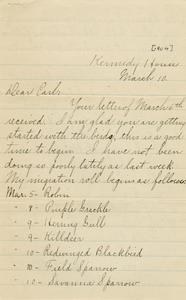 [1904]
Kennedy House
March 10
Dear Earl:
Your letter of March 6th
received. I am glad you are getting
started with the birds, this is a good
time to begin. I have not been
doing so poorly lately as last week.
My migration roll begins as follows:
Mar. 5 - Robin
" 8 - Purple Grackle
" 9 - Herring Gull
" 9 - Killdeer
" 10 - Redwinged Blackbird
" 10 - Field Sparrow
" 10 - Savanna Sparrow